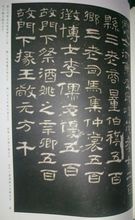 縣三老商量伯祺五百
鄉三老司馬集仲裳五百
徵博士李儒文優五百
故門下祭酒姚之辛卿五百
故門下掾王敞元方千